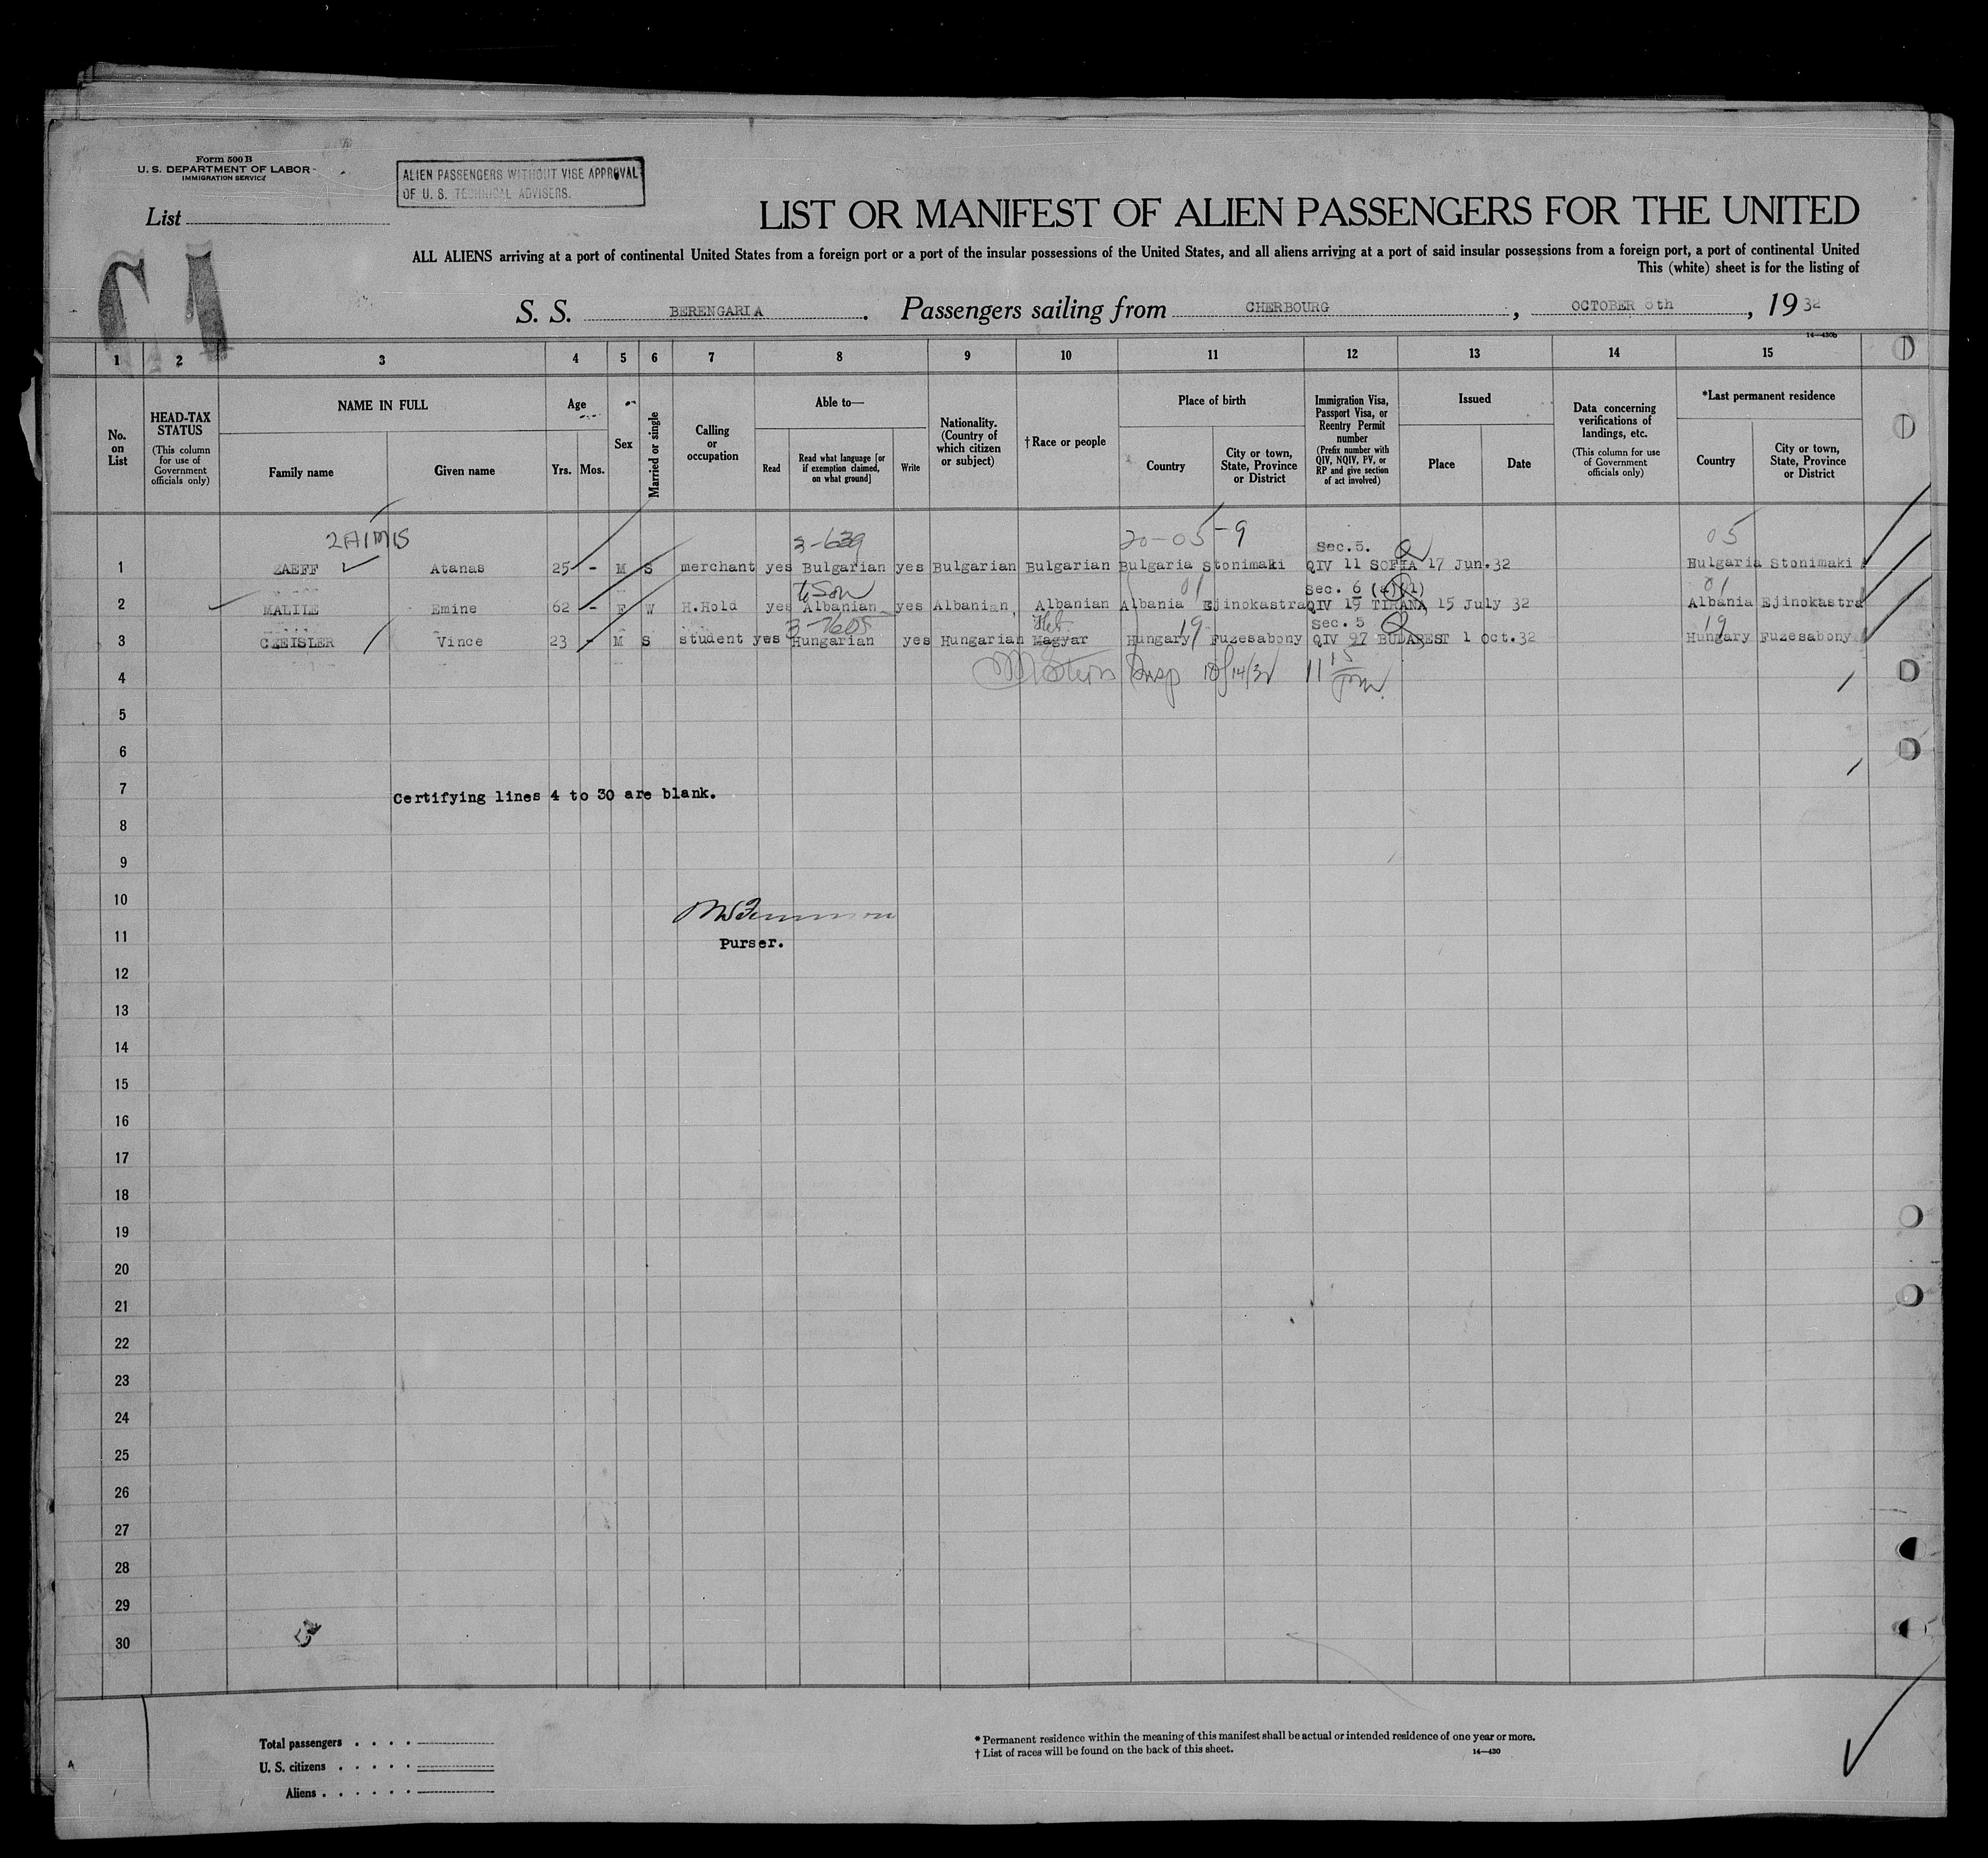 Form 500 B
U. S. DEPARTMENT OF LABOR
IMMIGRATION SERVICE
ALIEN PASSENGERS WITHOUT VISE APPROVAL
OF U. S. TECHNICAL ADVISERS.
List
LIST OR MANIFEST OF ALIEN PASSENGERS FOR THE UNITED
ALL ALIENS arriving at a port of continental United States from a foreign port or a port of the insular possessions of the United States, and all aliens arriving at a port of said insular possessions from a foreign port, a port of continental United
This (white) sheet is for the listing of
S. S. BERENGARIA. Passengers sailing from CHERBOURG, OCTOBER 8th, 1932
14—430b
1 2 3 4 5 6 7 8 9 10 11 12 13 14 15
No. on List
HEAD-TAX STATUS
(This column for use of Government officials only)
NAME IN FULL
Family name
Given name
Age
Yrs. Mos.
Sex
Married or single
Calling or occupation
Able to—
Read
Read what language [or if exemption claimed, on what ground]
Write
Nationality. (Country of which citizen or subject)
†Race or people
Place of birth
Country
City or town, State, Province or District
Immigration Visa, Passport Visa, or Reentry Permit number
(Prefix number with QIV, NQIV, PV, or RP and give section of act involved)
Issued
Place
Date
Data concerning verifications of landings, etc.
(This column for use of Government officials only)
*Last permanent residence
Country
City or town, State, Province or District
3-639 20-05-9 Sec.5. 05
1 ZAEFF Atanas 25 - M S merchant yes Bulgarian yes Bulgarian Bulgarian Bulgaria Stonimaki QIV 11 SOFIA 17 Jun.32 Bulgaria Stonimaki
to Son 01 Sec. 6 01
2 MALILE Emine 62 - F W H.Hold yes Albanian yes Albanian, Albanian Albania Ejinokastra QIV 19 TIRANA 15 July 32 Albania Ejinokastra
3-7605 Heb 19 Sec. 5 19
3 CZEISLER Vince 23 - M S student yes Hungarian yes Hungarian Magyar Hungary Fuzesabony QIV 97 BUDAPEST 1 Oct.32 Hungary Fuzesabony
4 Insp 10/14/32 11
5
6
7 Certifying lines 4 to 30 are blank.
8
9
10
11 Purser.
12
13
14
15
16
17
18
19
20
21
22
23
24
25
26
27
28
29
30
Total passengers
U. S. citizens
Aliens
* Permanent residence within the meaning of this manifest shall be actual or intended residence of one year or more.
† List of races will be found on the back of this sheet.
14—430